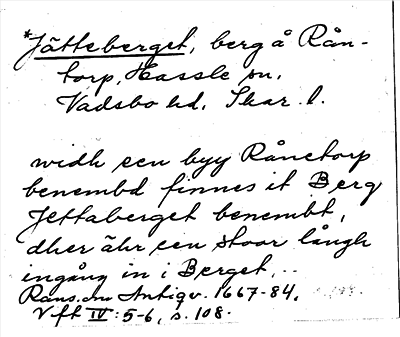 *Jätteberget, berg å Rån-
torp, Hassle sn,
Vadsbo hd, Skar. l.
widh een byy Rånetorp
benembd finnes it Berg
Jettaberget benembt,
dher ähr een stoor långh
ingång in i Berget...
Rans. om Antiqv. 1667-84,
Vft IV: 5-6, s. 108.